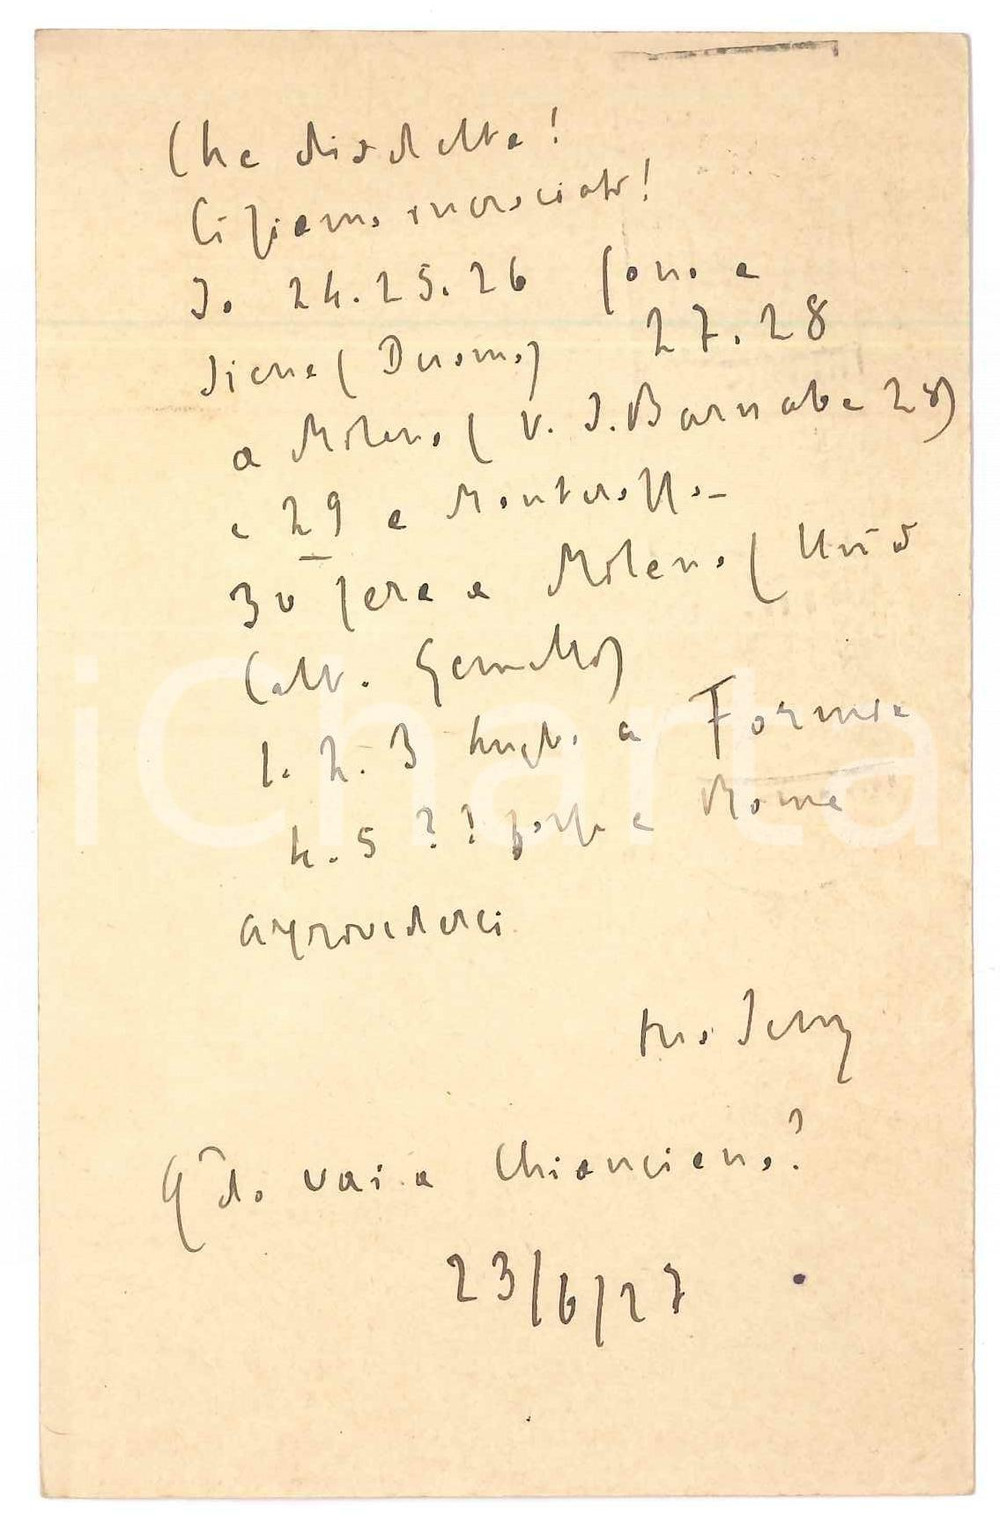 Che disdetta!
Ci siamo incrociati!
Io 24.25.26 sono a
Siena (Duomo) 27.28
a Milano (V. S. Barnaba 28)
e 29 a
30 sera a Milano (Univ
Catt. Gemelli)
1. 2. 3 luglio a Formia
4. 5 ?? forse a Roma
arrivederci
tuo
Qdo vai a Chianciano?
23/6/27
iCharta